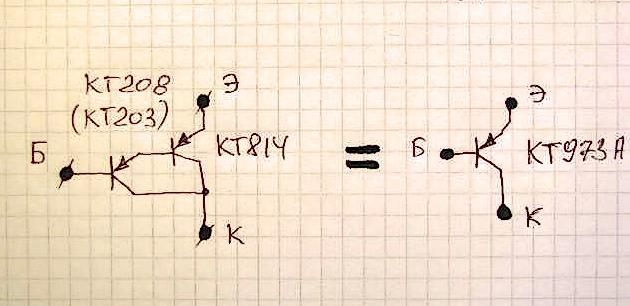 КТ208
(КТ203)
Э
Б
КТ814
К
=
Э
Б
КТ973А
К